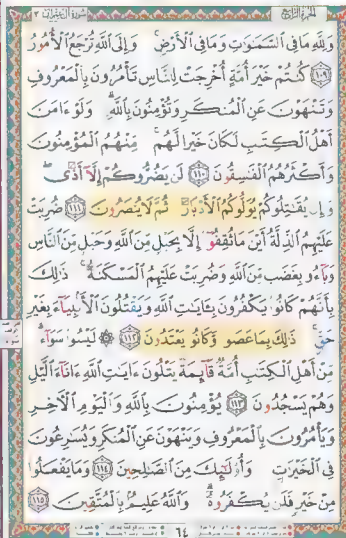 الجزء الرابع سورة آل عمران ٣
وَلِلَّهِ مَا فِي السَّمَاوَاتِ وَمَا فِي الْأَرْضِ وَإِلَى اللَّهِ تُرْجَعُ الْأُمُورُ
١٠٩ كُنْتُمْ خَيْرَ أُمَّةٍ أُخْرِجَتْ لِلنَّاسِ تَأْمُرُونَ بِالْمَعْرُوفِ
وَتَنْهَوْنَ عَنِ الْمُنْكَرِ وَتُؤْمِنُونَ بِاللَّهِ وَلَوْ ءَامَنَ
أَهْلُ الْكِتَٰبِ لَكَانَ خَيْرًا لَهُمْ مِنْهُمُ الْمُؤْمِنُونَ
وَأَكْثَرُهُمُ الْفَٰسِقُونَ ١١٠ لَنْ يَضُرُّوكُمْ إِلَّا أَذًى
وَإِنْ يُقَٰتِلُوكُمْ يُوَلُّوكُمُ الْأَدْبَارَ ثُمَّ لَا يُنْصَرُونَ ١١١ ضُرِبَتْ
عَلَيْهِمُ الذِّلَّةُ أَيْنَ مَا ثُقِفُوا إِلَّا بِحَبْلٍ مِنَ اللَّهِ وَحَبْلٍ مِنَ النَّاسِ
وَبَآءُو بِغَضَبٍ مِنَ اللَّهِ وَضُرِبَتْ عَلَيْهِمُ الْمَسْكَنَةُ ذَٰلِكَ
بِأَنَّهُمْ كَانُوا يَكْفُرُونَ بِـَٔايَٰتِ اللَّهِ وَيَقْتُلُونَ الْأَنْبِيَآءَ بِغَيْرِ
حَقٍّ ذَٰلِكَ بِمَا عَصَوْا وَكَانُوا يَعْتَدُونَ ١١٢ ۞ لَيْسُوا سَوَآءً
مِنْ أَهْلِ الْكِتَٰبِ أُمَّةٌ قَآئِمَةٌ يَتْلُونَ ءَايَٰتِ اللَّهِ ءَانَآءَ الَّيْلِ
وَهُمْ يَسْجُدُونَ ١١٣ يُؤْمِنُونَ بِاللَّهِ وَالْيَوْمِ الْءَاخِرِ
وَيَأْمُرُونَ بِالْمَعْرُوفِ وَيَنْهَوْنَ عَنِ الْمُنْكَرِ وَيُسَٰرِعُونَ
فِي الْخَيْرَٰتِ وَأُولَٰٓئِكَ مِنَ الصَّٰلِحِينَ ١١٤ وَمَا يَفْعَلُوا
مِنْ خَيْرٍ فَلَنْ يُكْفَرُوهُ وَاللَّهُ عَلِيمٌ بِالْمُتَّقِينَ ١١٥
٦٤